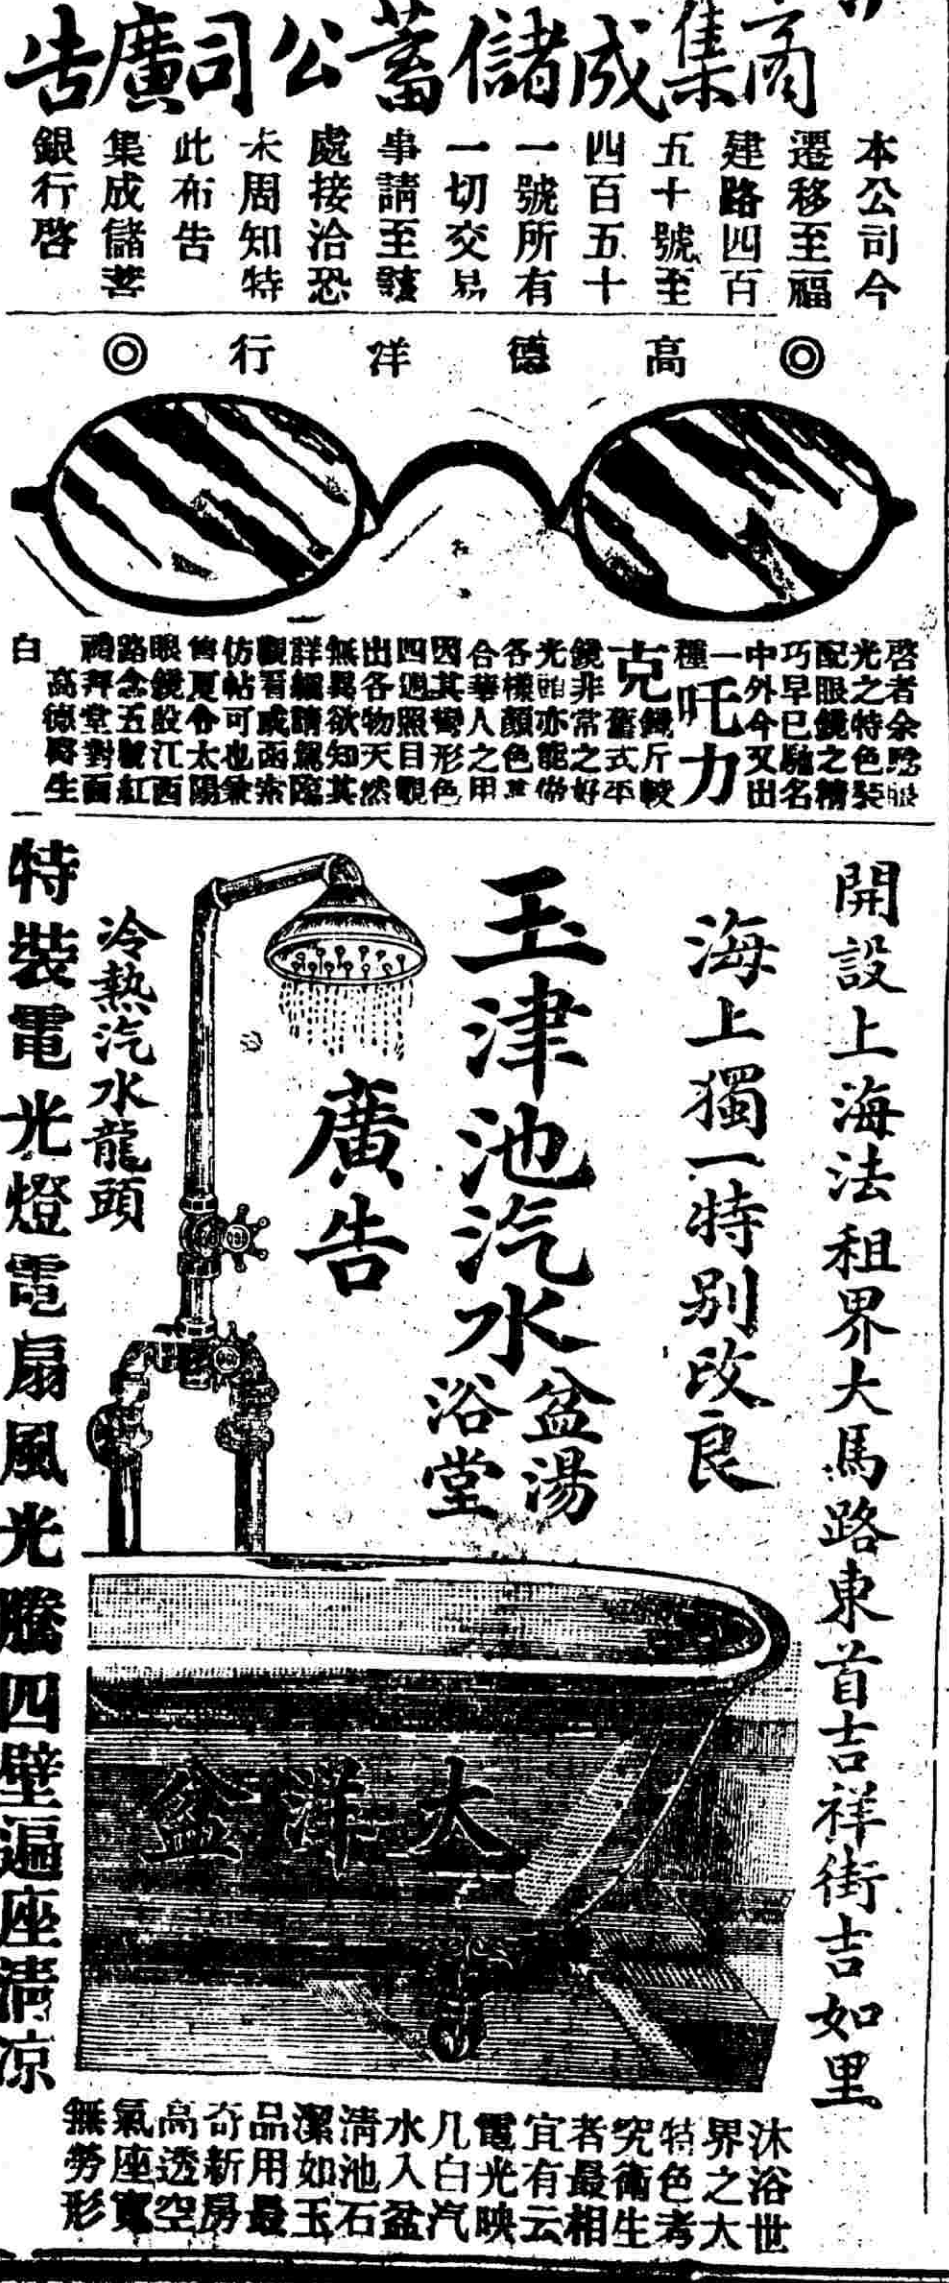 商集成儲蓄公司廣告
本公司今
遷移至福
建路四百
五十號至
四百五十
一號所有
一切交易
事請至該
處接洽恐
未周知特
此布告
集成儲蓄
銀行啓
◎高德洋行◎
啓者余驗眼
光之特色裝
配眼鏡之精
巧早已馳名
中外今又出
一種
吒力克
鏡斤較
舊式平
鏡非常之好
光頭亦能做
各樣顏色真
合華人之用
因其彎形色
四週照目觀
出各物天然
無異欲知其
詳細請駕臨
觀看或函索
仿帖可也兼
售夏令太陽
眼鏡設江西
路念五號紅
禮拜堂對面
高德醫生
白
開設上海法租界大馬路東首吉祥街吉如里
海上獨一特別改良
玉津池汽水盆湯浴堂
廣告
冷熱汽水龍頭
特裝電光燈電扇風光騰四壁遍座清凉
大洋盆
沐浴世
界之大
特色考
究衛生
者最相
宜有云
電光映
几白汽
水入盆
清池石
潔如玉
品用最
奇新房
高透空
氣座寬
無勞形